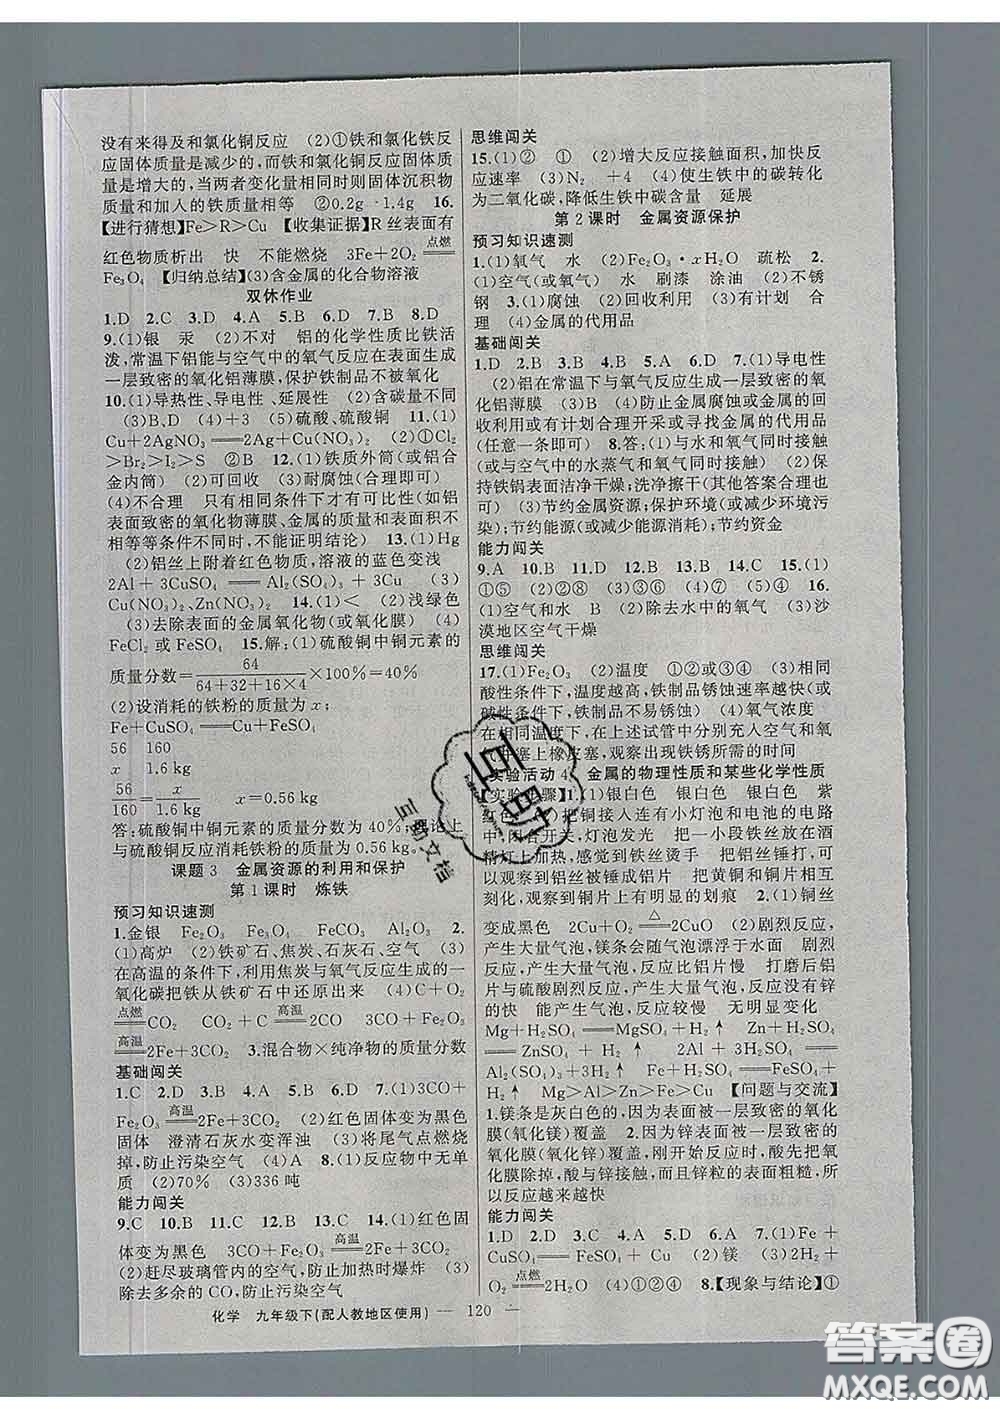 没有来得及和氯化铜反应 (2)①铁和氯化铁反
应固体质量是减少的,而铁和氯化铜反应固体质量
是增大的,当两者变化量相同时则固体沉积物
质量和加入的铁质量相等 ②0.2g·1.4g 16.
【进行猜想】Fe>R>Cu 【收集证据】R丝表面有
红色物质析出 快 不能燃烧 3Fe+2O₂ 点燃══
Fe₃O₄ 【归纳总结】(3)含金属的化合物溶液
双休作业
1.D 2.C 3.D 4.A 5.B 6.D 7.B 8.D
9.(1)银 汞 (2)不对 铝的化学性质比铁活
泼,常温下铝能与空气中的氧气反应在表面生成
一层致密的氧化铝薄膜,保护铁制品不被氧化
10.(1)导热性、导电性、延展性 (2)含碳量不同
(3)B、D (4)+3 (5)硫酸、硫酸铜 11.(1)
Cu+2AgNO₃══2Ag+Cu(NO₃)₂ (2)①Cl₂
>Br₂>I₂>S ②B 12.(1)铁质外筒(或铝合
金内筒) (2)可回收 (3)耐腐蚀(合理即可)
(4)不合理 只有相同条件下才有可比性(如铝
表面致密的氧化物薄膜、金属的质量和表面积不
相等等条件不同时,不能证明结论) 13.(1)Hg
(2)铝丝上附着红色物质,溶液的蓝色变浅
2Al+3CuSO₄══Al₂(SO₄)₃+3Cu (3)
Cu(NO₃)₂、Zn(NO₃)₂ 14.(1)< (2)浅绿色
(3)去除表面的金属氧化物(或氧化膜) (4)
FeCl₂或FeSO₄ 15.解:(1)硫酸铜中铜元素的
质量分数=64/(64+32+16×4)×100%=40%
(2)设消耗的铁粉的质量为x;
Fe+CuSO₄══Cu+FeSO₄
56 160
x 1.6 kg
56/160=x/1.6 kg x=0.56 kg
答:硫酸铜中铜元素的质量分数为40%;理论上
与硫酸铜反应消耗铁粉的质量为0.56 kg。
课题3 金属资源的利用和保护
第1课时 炼铁
预习知识速测
1.金银 Fe₂O₃ Fe₃O₄ FeCO₃ Al₂O₃ 2.
(1)高炉 (2)铁矿石、焦炭、石灰石、空气 (3)
在高温的条件下,利用焦炭与氧气反应生成的一
氧化碳把铁从铁矿石中还原出来 (4)C+O₂
点燃══CO₂ CO₂+C 高温══2CO Fe₂O₃+3CO
高温══2Fe+3CO₂ 3.混合物×纯净物的质量分数
基础闯关
1.C 2.D 3.B 4.A 5.B 6.D 7.(1)3CO+
Fe₂O₃ 高温══2Fe+3CO₂ (2)红色固体变为黑色
固体 澄清石灰水变浑浊 (3)将尾气点燃烧
掉,防止污染空气 (4)A 8.(1)反应物中无单
质 (2)70% (3)336吨
能力闯关
9.C 10.B 11.C 12.B 13.C 14.(1)红色固
体变为黑色 3CO+Fe₂O₃ 高温══2Fe+3CO₂
(2)赶尽玻璃管内的空气,防止加热时爆炸 (3)
除去多余的CO,防止污染空气
思维闯关
15.(1)② ① (2)增大反应接触面积,加快反
应速率 (3)N₂ +4 (4)使生铁中的碳转化
为二氧化碳,降低生铁中碳含量 延展
第2课时 金属资源保护
预习知识速测
1.(1)氧气 水 (2)Fe₂O₃·xH₂O 疏松 2.
(1)空气(或氧气) 水 刷漆 涂油 (2)不锈
钢 3.(1)腐蚀 (2)回收利用 (3)有计划 合
理 (4)金属的代用品
基础闯关
1.D 2.B 3.B 4.B 5.A 6.D 7.(1)导电性
(2)铝在常温下与氧气反应生成一层致密的氧
化铝薄膜 (3)B (4)防止金属腐蚀或金属的回
收利用或有计划合理开采或寻找金属的代用品
(任意一条即可) 8.答:(1)与水和氧气同时接触
(或与空气中的水蒸气和氧气同时接触) (2)保
持铁锅表面洁净干燥;洗净擦干(其他答案合理也
可) (3)节约金属资源;保护环境(或减少环境污
染);节约能源(或减少能源消耗);节约资金
能力闯关
9.A 10.B 11.D 12.D 13.B 14.C 15.(1)
①⑤ (2)②⑧ (3)③⑥ (4)⑦ (5)⑧ 16.
(1)空气和水 B (2)除去水中的氧气 (3)沙
漠地区空气干燥
思维闯关
17.(1)Fe₂O₃ (2)温度 ①②或③④ (3)相同
酸性条件下,温度越高,铁制品锈蚀速率越快(或
碱性条件下,铁制品不易锈蚀) (4)氧气浓度
在相同温度下,在上述试管中分别充入空气和氧
气中塞上橡皮塞,观察出现铁锈所需的时间
实验活动4 金属的物理性质和某些化学性质
【实验步骤】1.(1)银白色 银白色 银白色 紫
红色 (2)把铜接入连有小灯泡和电池的电路
中,闭合开关,灯泡发光 把一小段铁丝放在酒
精灯上加热,感觉到铁丝烫手 把铝丝锤打,可
以观察到铝丝被锤成铝片 把黄铜和铜片相互
刻化,观察到铜片上有明显的划痕 2.(1)铜丝
变成黑色 2Cu+O₂ △══2CuO (2)剧烈反应,
产生大量气泡,镁条会随气泡漂浮于水面 剧烈
反应,产生大量气泡,反应比铝片慢 打磨后铝片
与硫酸剧烈反应,产生大量气泡,反应没有锌
的快 能产生气泡,反应较慢 无明显变化
Mg+H₂SO₄══MgSO₄+H₂↑ Zn+H₂SO₄
══ZnSO₄+H₂↑ 2Al+3H₂SO₄══
Al₂(SO₄)₃+3H₂↑ Fe+H₂SO₄══FeSO₄+
H₂↑ Mg>Al>Zn>Fe>Cu 【问题与交流】
1.镁条是灰白色的,因为表面被一层致密的氧化
膜(氧化镁)覆盖 2.因为锌表面被一层致密的氧
化膜(氧化锌)覆盖,刚开始反应时,酸先把氧
化膜除掉,酸与锌接触,而且锌粒的表面粗糙,所
以反应越来越快
能力闯关
1.D 2.D 3.C 4.A 5.D 6.A 7.(1)Fe+
CuSO₄══FeSO₄+Cu (2)镁 (3)2H₂+
O₂ 点燃══2H₂O (4)②④①③ 8.【现象与结论】①
化学 九年级下(配人教地区使用) — 120 —
互助
互助文档
答案圈
MXQE.COM